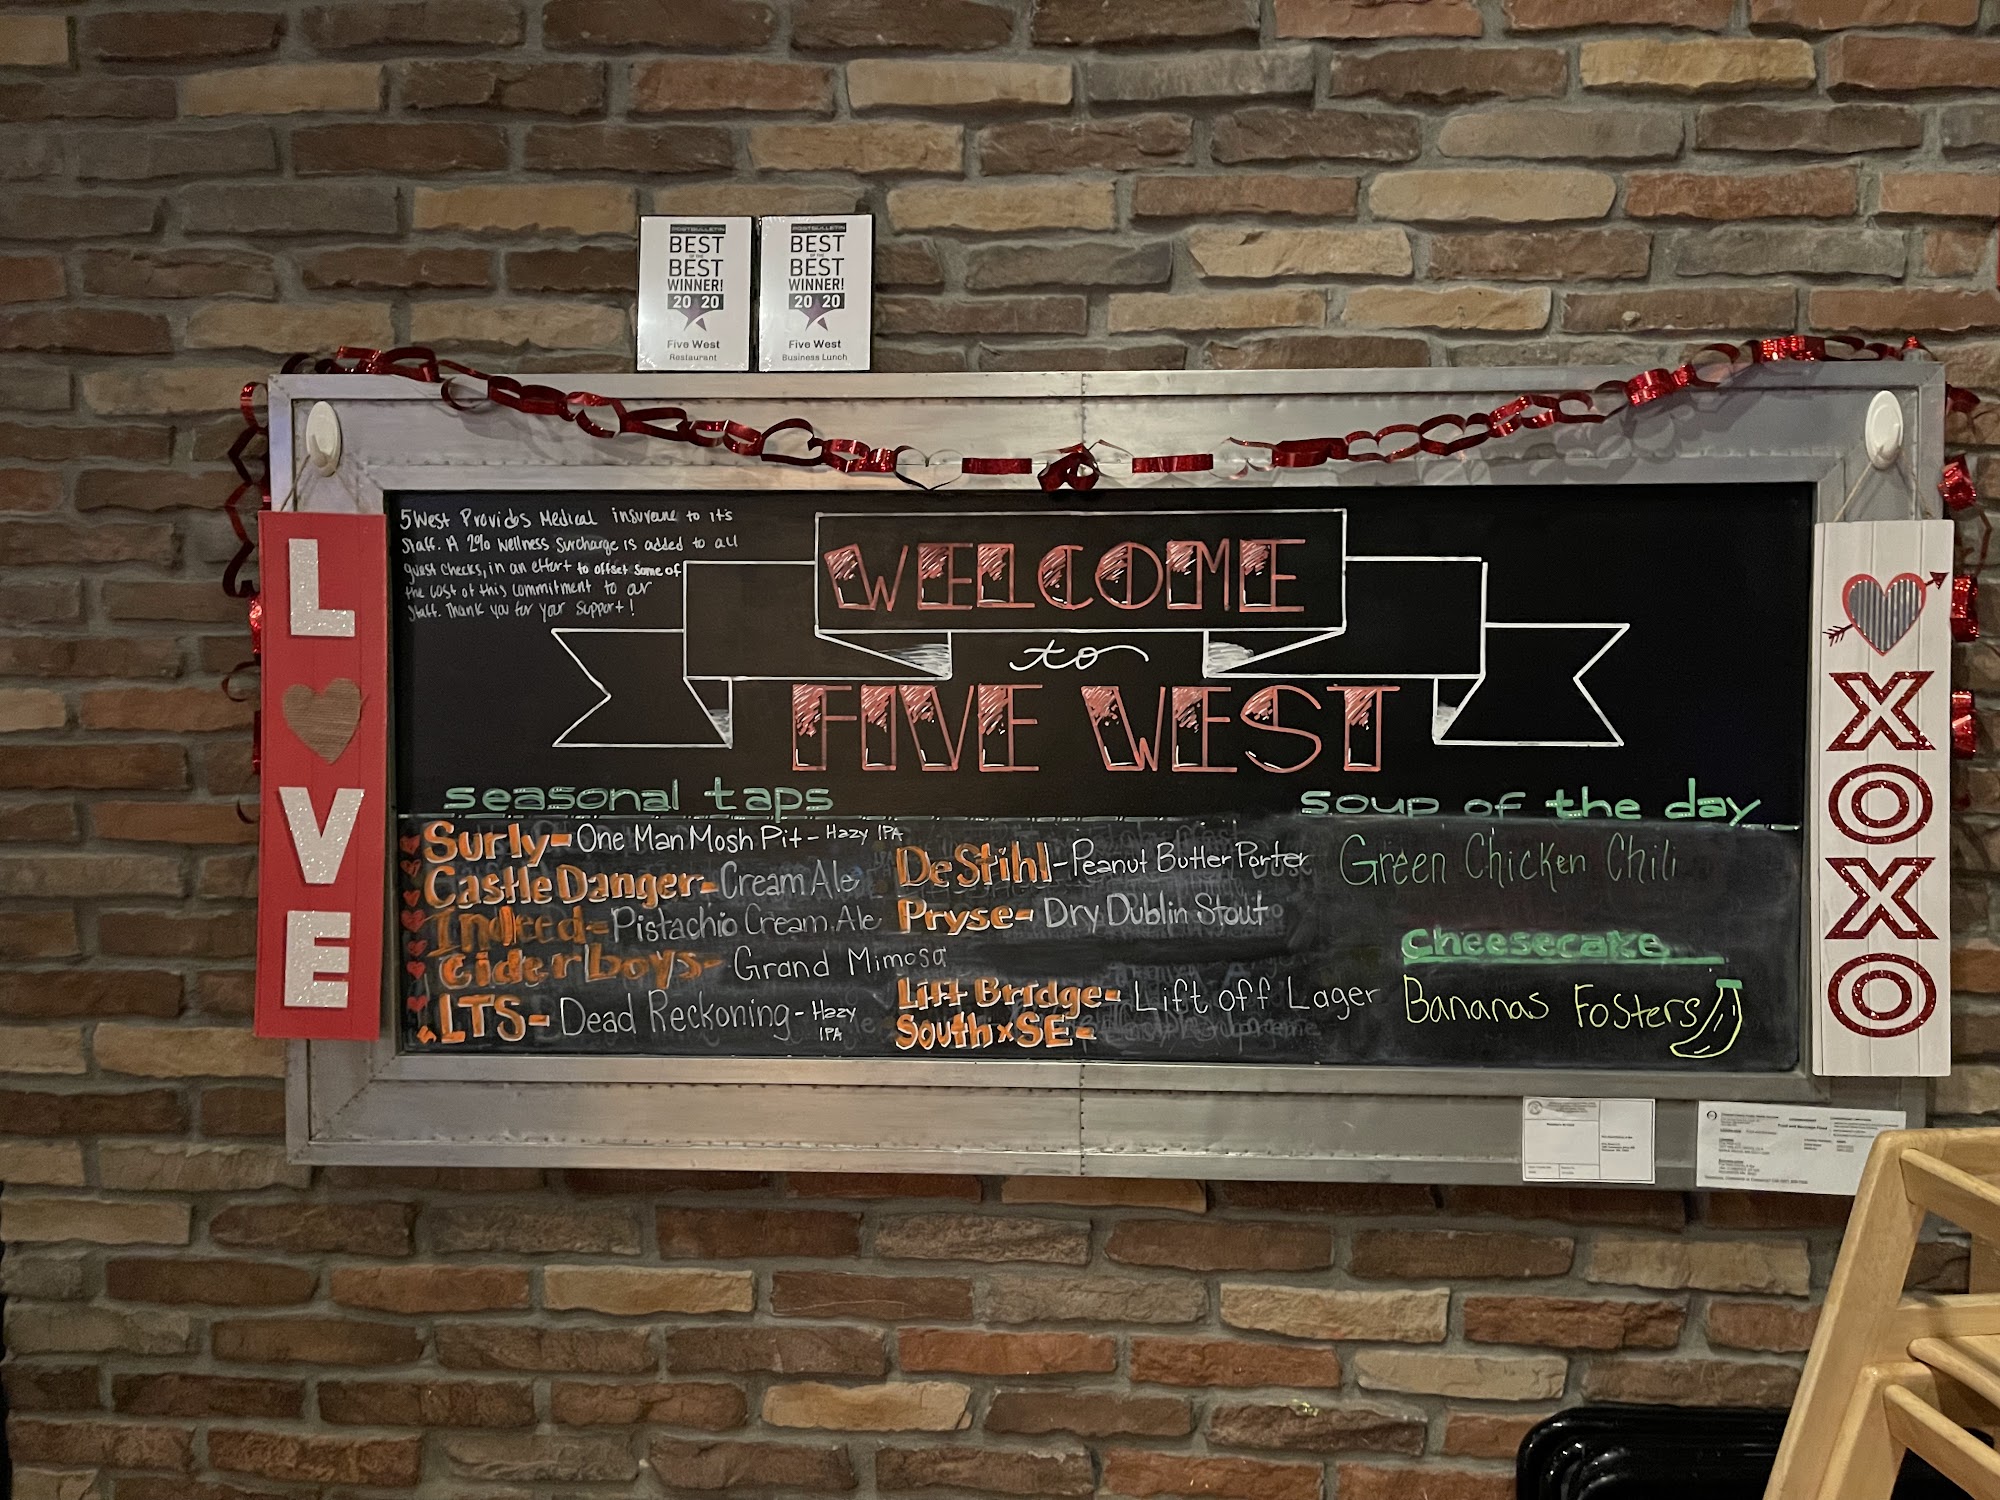 POSTBULLETIN
BEST
OF THE
BEST
WINNER!
2020
Five West
Restaurant
POSTBULLETIN
BEST
OF THE
BEST
WINNER!
2020
Five West
Business Lunch
LOVE
5 West Provides Medical insurance to it's
Staff. A 2% Wellness Surcharge is added to all
guest checks, in an effort to offset some of
the cost of this commitment to our
staff. Thank you for your support!
WELCOME
to
FIVE WEST
XOXO
seasonal taps
Surly- One Man Mosh Pit - Hazy IPA
Castle Danger- Cream Ale
Indeed- Pistachio Cream Ale
Ciderboys- Grand Mimosa
LTS- Dead Reckoning - Hazy
IPA
DeStihl- Peanut Butter Porter
Pryse- Dry Dublin Stout
Lift Bridge- Lift off Lager
South x SE-
soup of the day
Green Chicken Chili
Cheesecake
Bananas Fosters
Food and Beverage Food